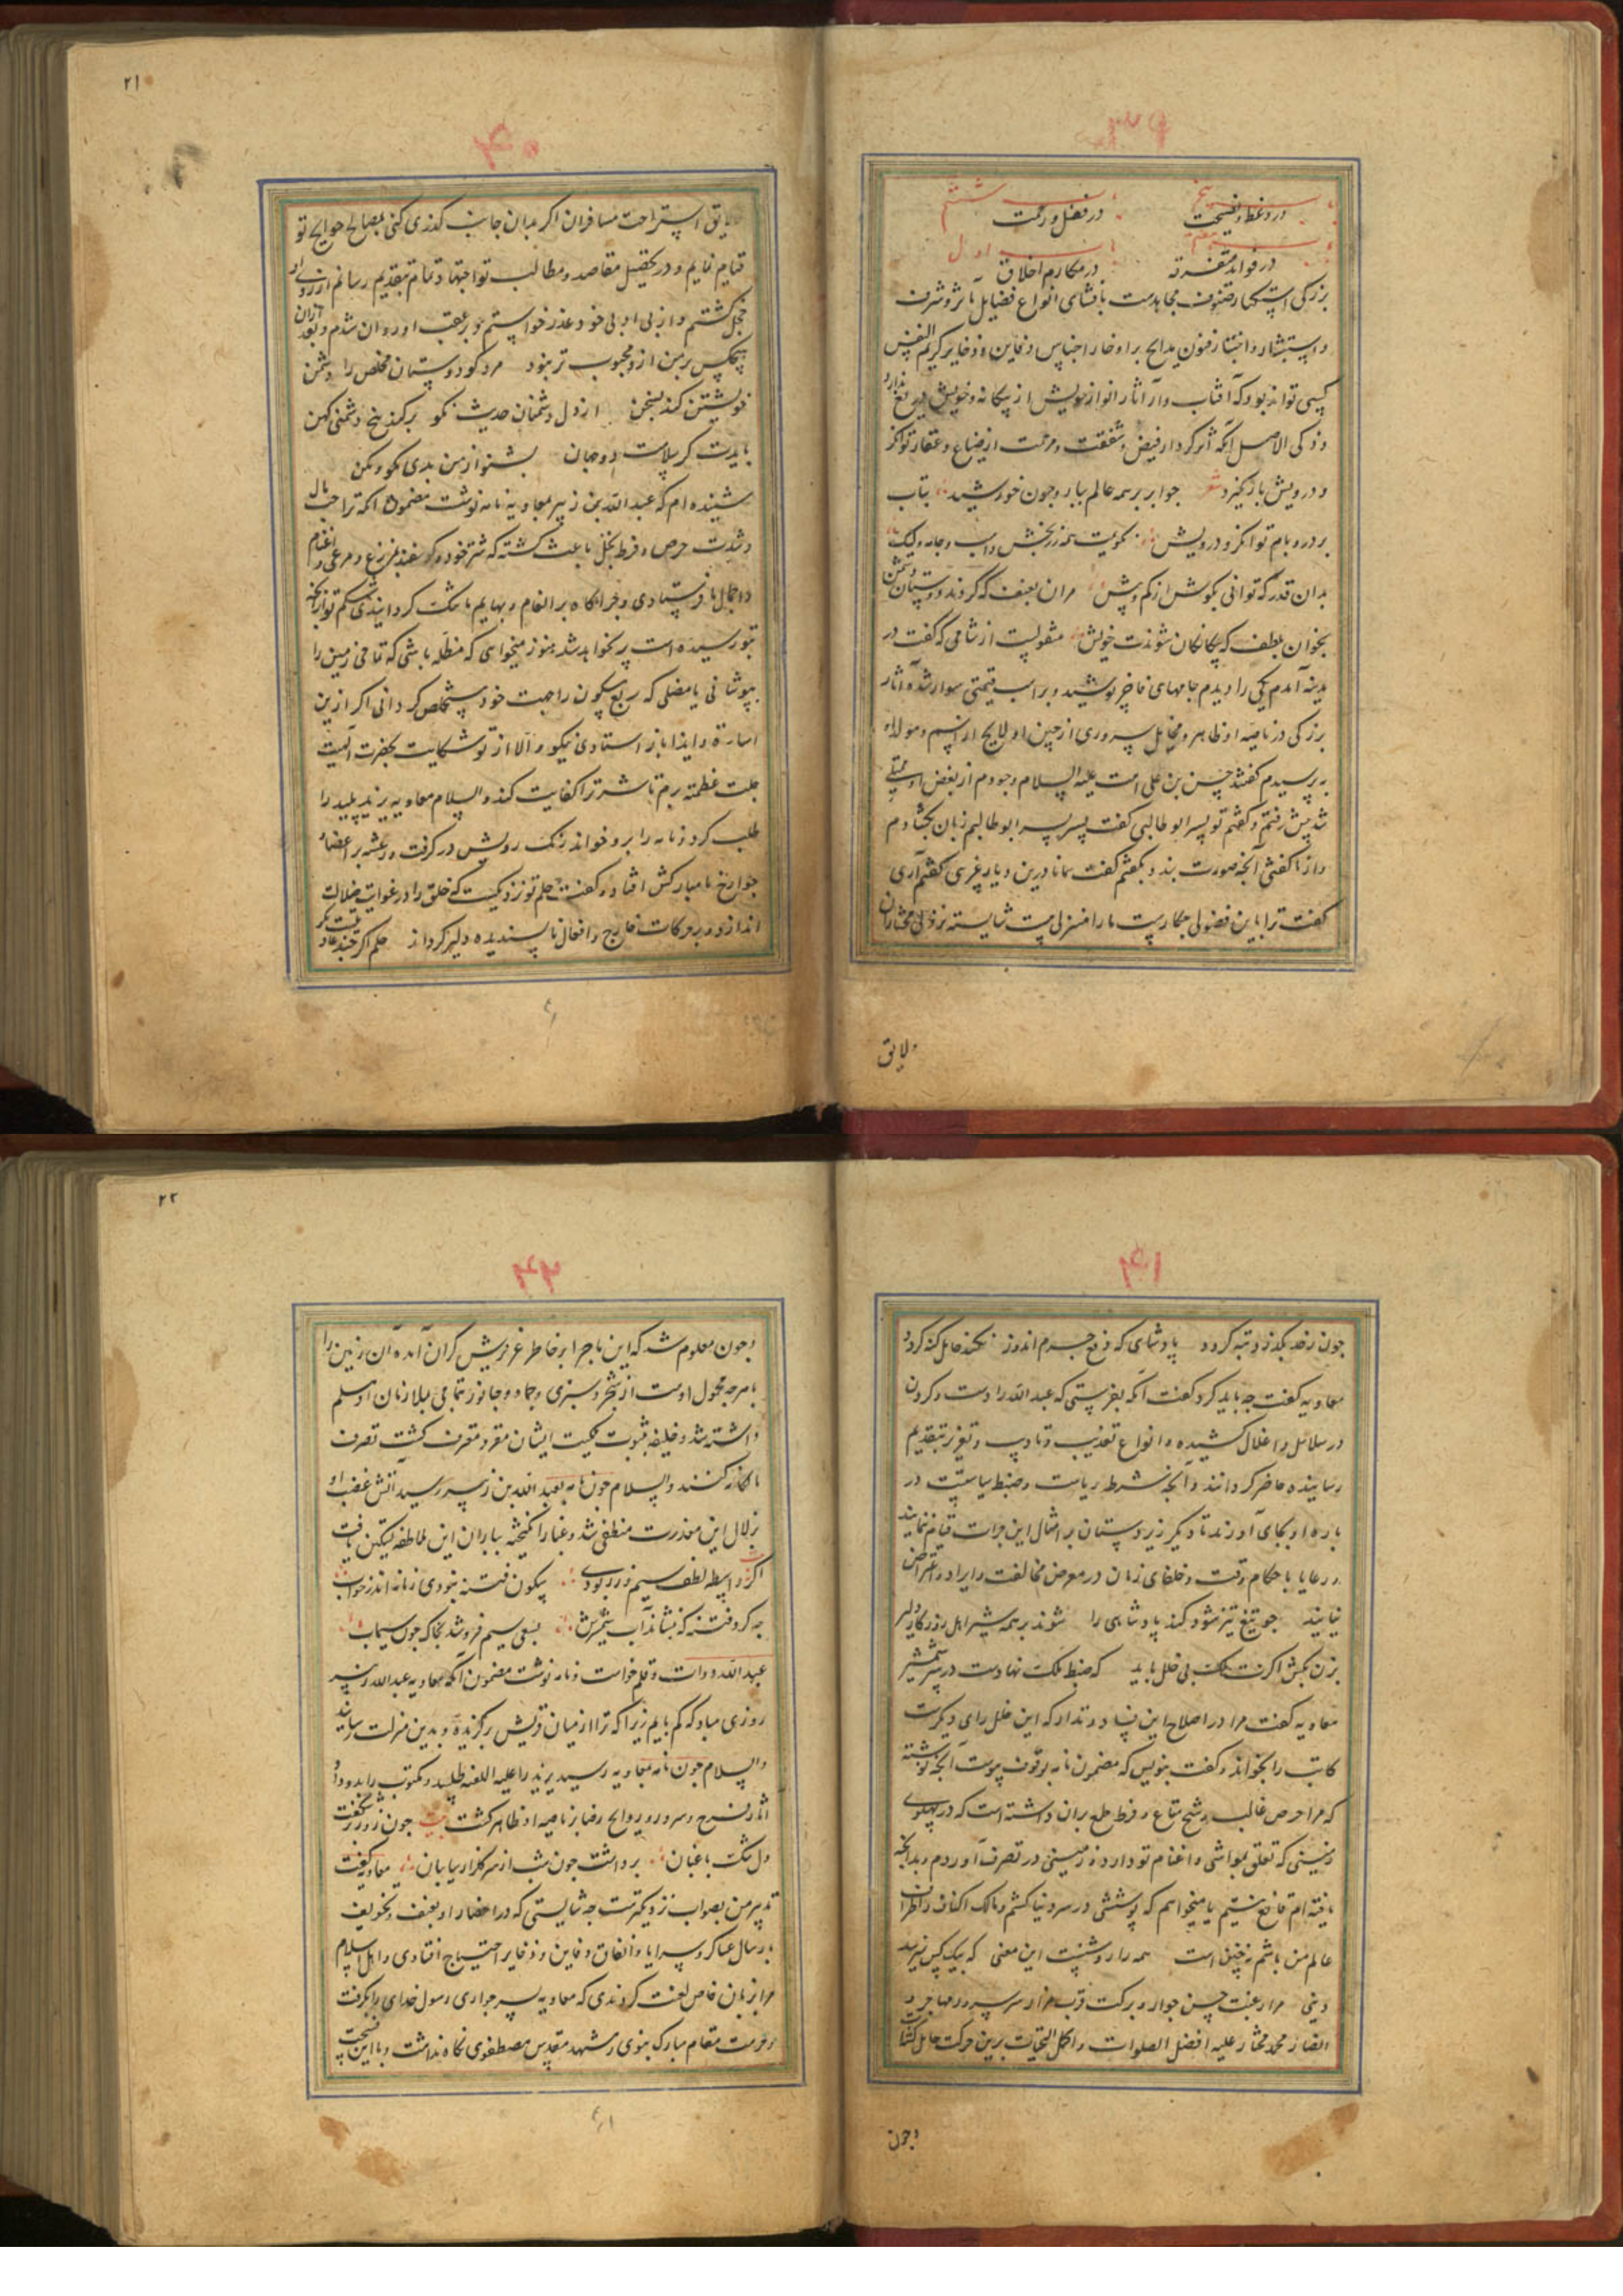 ۲۱
باب پنجم باب ششم
در وعظ و نصیحت در فضل و رحمت
باب هفتم باب اول
در فواید متفرقه در مکارم اخلاق
بزرگی استکثار صنوف محامدست بافشای انواع فضایل مآثر و شرف
و استبشار و اختیار فنون مدایح براوخار اجناس دفاین و ذخایر کریم النفس
کسی تواند بود که آفتاب وار آثار انوار خویش از بیکانه و خویش دریغ ندارد
و زکی الاصل آنکه اثر کردار فیض و شفقت و مرحمت از ضیاع و عقار توانکر
و درویش باز نکیرد شعر جو ابر بر همه عالم ببار و جون خورشید بتاب
بر در و بام توانکر و درویش نکویت همه زر بخش و اسب و جامه ولیک
بدان قدر که توانی بکوش از کم و بیش مران بعنف که کردند دوستان دشمن
بخوان بلطف که بیکانکان شوندت خویش منقولست از شامی که گفت در
مدینه آمدم یکی را دیدم جامهای فاخر پوشیده و بر اسب قیمتی سوار شده آثار
بزرکی در ناصیه او ظاهر و مخایل سروری از جبین او لایح از اسم و مولد او
بپرسیدم گفتند حسن بن علی است علیه السلام وجودم از بغض او ممتلی
شد پیش رفتم و کفتم تو پسر ابو طالبی کفت پسر پسر ابو طالبم زبان بکشادم
و از ناکفتنی آنجه صورت بند بکفتم کفت همانا درین دیار غریبی کفتم آری
کفت ترا باین فضولی جکارست ما را منزلی هست شایسته نزول مختاران
ولایق
لایق استراحت مسافران اکر بدان جانب کذری کنی بمصالح حوایج تو
قیام نمایم و در تحصیل مقاصد و مطالب تو اجتهاد تمام بتقدیم رسانم از روی او
خجل کشتم و از بی ادبی خود عذر خواستم و بر عقب او روان شدم و بعد از آن
هیچکس بر من ازو محبوب تر نبود مرد کو دوستان مخلص را دشمن
خویشتن کند بسخن از دل دشمنان حدیث نکو بر کند بیخ دشمنی کهن
بایدت کر سلامت دو جهان بشنو از من بدی مکو و مکن
شنیده ام که عبد الله بن زبیر بمعاویه نامه نوشت مضمون آنکه ترا حب مال
و شدت حرص و فرط بخل باعث کشته که شتر خود و کوسفند بمزرع و مرعی اغنام
و اجمال ما فرستادی و جراکاه بر انعام و بهایم ما تنک کردانیدی شکم تو از آنجه
بتو رسیده است پر نخواهد شد هنوز میخواهی که مظله باشی که تمامی زمین را
بپوشانی یا مضلی که ربع مسکون را جهت خود مستخلص کردانی اکر ازین
اساءة و ایذا باز استادی نیکو و الا از تو شکایت بحضرت الهیت
جلت عظمته برم تا شر ترا کفایت کند و السلام معاویه یزید پلید را
طلب کرد و نامه را برو خواند رنک رویش در کرفت و رعشه بر اعضا و
جوارح نامبارکش افتاد و کفت حلم تو نزدیکست که خلق را در غوایت ضلالت
اندازد و بر حرکات خارج و افعال ناپسندیده دلیر کرداند حلم اکر جند عادت نیست مکر
۲۲
جون ز حد بکذرد تبه کردد پادشاهی که دفع جرم اندوز نکند حامل کنه کردد
معاویه کفت جه باید کرد کفت آنکه بفرستی که عبد الله را دست و کردن
در سلاسل و اغلال کشیده و انواع تعذیب و تادیب و تعزیر بتقدیم
رسانیده حاضر کردانند و آنجه شرط ریاست و ضبط سیاستست در
باره او بجای آورند تا دیکر زیردستان بر امثال این جرات قیام ننمایند
و رعایا با حکام وقت و خلفای زمان در معرض مخالفت و ایراد و اعتراض
نیایند جو تیغ تیز نشود کند پادشاهی را شوند بر همه شیر اهل روزکار دلیر
بزن بکش اکرت ملک بی خلل باید که ضبط ملک نهادست در سر شمشیر
معاویه کفت مرا در اصلاح این فساد و تدارک این خلل رای دیکرست
کاتب را بخواند و کفت بنویس که مضمون نامه بوقوف پیوست آنجه نوشته
که مرا حرص غالب و شح متاع و فرط طمع بران داشته است که در پهلوی
زمینی که تعلق بمواشی و اغنام تو دارد زمینی در تصرف آوردم و بدانجه
یافته ام قانع نیستم یا میخواهم که پوششی در سر دنیا کشم و مالک اکناف و اطراف
عالم من باشم نه چنین است همه را روشنست این معنی که بیک کس نرسد
دینی مرا رغبت حسن جوار و برکت قرب مزار سرور مهاجر و
انصار محمد مختار علیه افضل الصلوات و اکمل التحیات برین حرکت حامل کشت
وجون
وجون معلوم شد که این ماجرا بر خاطر عزیزش کران آمده آن زمین را
با هر جه محمول اوست از شجر و سبزی و جماد و جانور تمامی بملازمان او مسلم
داشته شد و خلیفه بثبوت ملکیت ایشان مقر و معترف کشت تصرف
مالکانه کنند والسلام جون نامه بعبد الله بن زبیر رسید آتش غضب او
بزلال این معذرت منطفی شد و غبار انکیخته بباران این ملاطفه تسکین یافت
اکر نه واسطه لطف سیم و زر بودی سکون فتنه نبودی زمانه اندر خواب
جه کرد فتنه که ننشاند آب شمشیرش بسعی سیم فرو شد بخاک جون سیماب
عبد الله دوات و قلم خواست و نامه نوشت مضمون آنکه معاویه عبد الله زبیر
روزی مباد که کم یابیم زیرا که ترا از میان قریش برکزیده و بدین منزلت رسانید
والسلام جون نامه بمعاویه رسید یزید را علیه اللعنه طلبید و مکتوب را بدو داد
آثار فرح و سرور و روایح رضا بر ناصیه او ظاهر کشت بیت جون ز زر شکفت
دل تنک باغبان برداشت جون بنفشه از سر کلزار سایبان معاویه کفت
تدبیر من بصواب نزدیکترست جه شایستی که در احضار او بعنف و تخویف
بارسال عساکر و سرایا و انفاق دفاین و ذخایر احتیاج افتادی و اهل اسلام
مرا بزبان خاص لعنت کردندی که معاویه پسر حواری رسول خدای را بکرفت
و حرمت مقام مبارک نبوی و مشهد مقدس مصطفوی نکاه نداشت و با این فضیحت